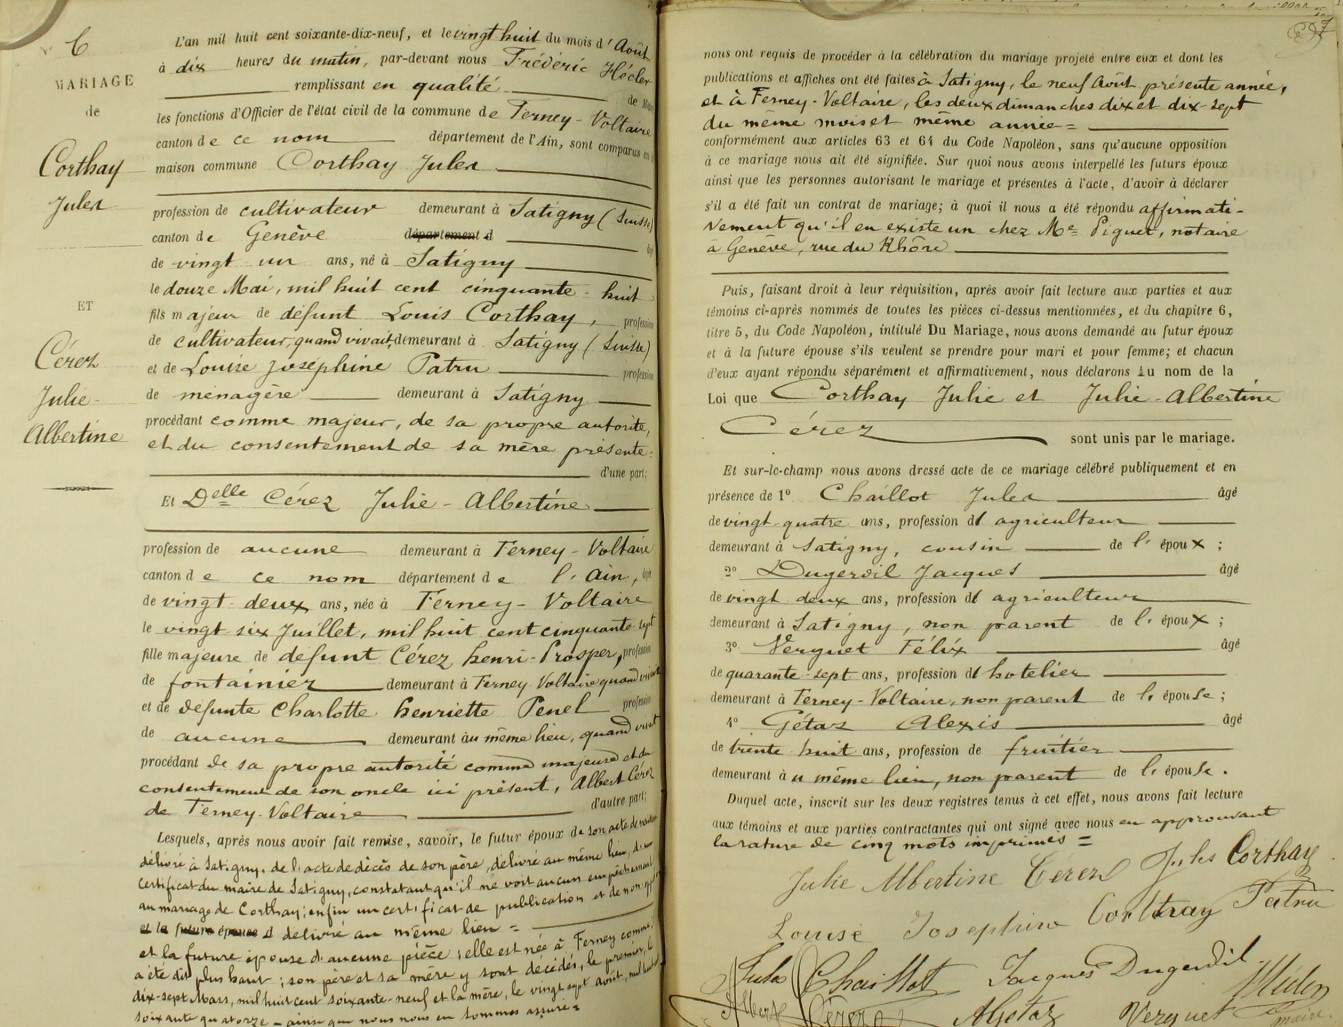 6
MARIAGE
de
Corthay
Jules
ET
Cérez
Julie-
Albertine
L'an mil huit cent soixante-dix-neuf, et le vingt huit du mois d'Août
à dix heures du matin, par-devant nous Frédéric Hécler
remplissant en qualité de
les fonctions d'Officier de l'état civil de la commune de Ferney-Voltaire
canton de ce nom département de l'Ain, sont comparus en la
maison commune Corthay Jules
profession de cultivateur demeurant à Satigny (Suisse)
canton de Genève département d
de vingt un ans, né à Satigny
le douze Mai, mil huit cent cinquante-huit
fils majeur de défunt Louis Corthay, profession
de cultivateur, quand vivait, demeurant à Satigny (Suisse)
et de Louise Joséphine Patru profession
de ménagère demeurant à Satigny
procédant comme majeur, de sa propre autorité,
et du consentement de sa mère présente=
d'une part;
Et Delle Cérez Julie-Albertine
profession de aucune demeurant à Ferney-Voltaire
canton de ce nom département de l'Ain, âgée
de vingt-deux ans, née à Ferney-Voltaire
le vingt six Juillet, mil huit cent cinquante-sept
fille majeure de défunt Cérez henri-Prosper, profession
de fontainier demeurant à Ferney Voltaire quand vivait
et de défunte Charlotte henriette Penel profession
de aucune demeurant au même lieu, quand vivait
procédant de sa propre autorité comme majeure et du
consentement de son oncle ici présent, Albert Cérez
de Ferney-Voltaire d'autre part;
Lesquels, après nous avoir fait remise, savoir, le futur époux de son acte de naissance
délivré à Satigny, de l'acte de décès de son père, délivré au même lieu, d'un
certificat du maire de Satigny, constatant qu'il ne voit aucun empêchement
au mariage de Corthay; enfin un certificat de publication et de non opposition
et la future épouse d délivré au même lieu=
et la future épouse d'aucune pièce; elle est née à Ferney comme
a été dit plus haut; son père et sa mère y sont décédés, le premier, le
dix-sept Mars, mil huit cent soixante-neuf et la mère, le vingt sept août, mil huit cent
soixante quatorze - ainsi que nous nous en sommes assuré=
nous ont requis de procéder à la célébration du mariage projeté entre eux et dont les
publications et affiches ont été faites à Satigny, le neuf Août présente année,
et à Ferney-Voltaire, les deux dimanches dix et dix-sept
du même mois et même année=
conformément aux articles 63 et 64 du Code Napoléon, sans qu'aucune opposition
à ce mariage nous ait été signifiée. Sur quoi nous avons interpellé les futurs époux
ainsi que les personnes autorisant le mariage et présentes à l'acte, d'avoir à déclarer
s'il a été fait un contrat de mariage; à quoi il nous a été répondu affirmati-
vement qu'il en existe un chez Me Piguet, notaire
à Genève, rue du Rhône
Puis, faisant droit à leur réquisition, après avoir fait lecture aux parties et aux
témoins ci-après nommés de toutes les pièces ci-dessus mentionnées, et du chapitre 6,
titre 5, du Code Napoléon, intitulé Du Mariage, nous avons demandé au futur époux
et à la future épouse s'ils veulent se prendre pour mari et pour femme; et chacun
d'eux ayant répondu séparément et affirmativement, nous déclarons au nom de la
Loi que Corthay Julie et Julie-Albertine
Cérez sont unis par le mariage.
Et sur-le-champ nous avons dressé acte de ce mariage célébré publiquement et en
présence de 1° Chaillot Jules âgé
de vingt-quatre ans, profession d'agriculteur
demeurant à Satigny, cousin de l'époux;
2° Dugerdil Jacques âgé
de vingt deux ans, profession d'agriculteur
demeurant à Satigny, non parent de l'époux;
3° Verguet Félix âgé
de quarante-sept ans, profession d'hotelier
demeurant à Ferney-Voltaire, non parent de l'épouse;
4° Gétaz Alexis âgé
de trente huit ans, profession de fruitier
demeurant au même lieu, non parent de l'épouse.
Duquel acte, inscrit sur les deux registres tenus à cet effet, nous avons fait lecture
aux témoins et aux parties contractantes qui ont signé avec nous en approuvant
la rature de cinq mots imprimés=
Julie Albertine Cerez Jules Corthay
Louise Josephine Corthay Patru
Jules Chaillot Jacques Dugerdil
Albert Cérez A Getaz Verguet
maire